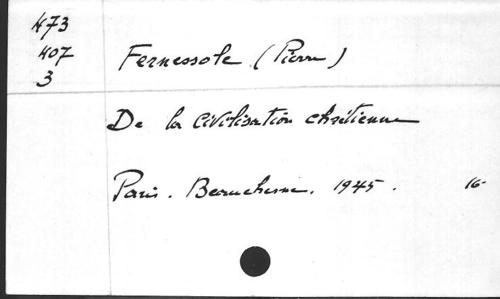 473
407
3
Fernessole (Pierre)
De la civilisation chrétienne
Paris. Beauchesne. 1945. 16-